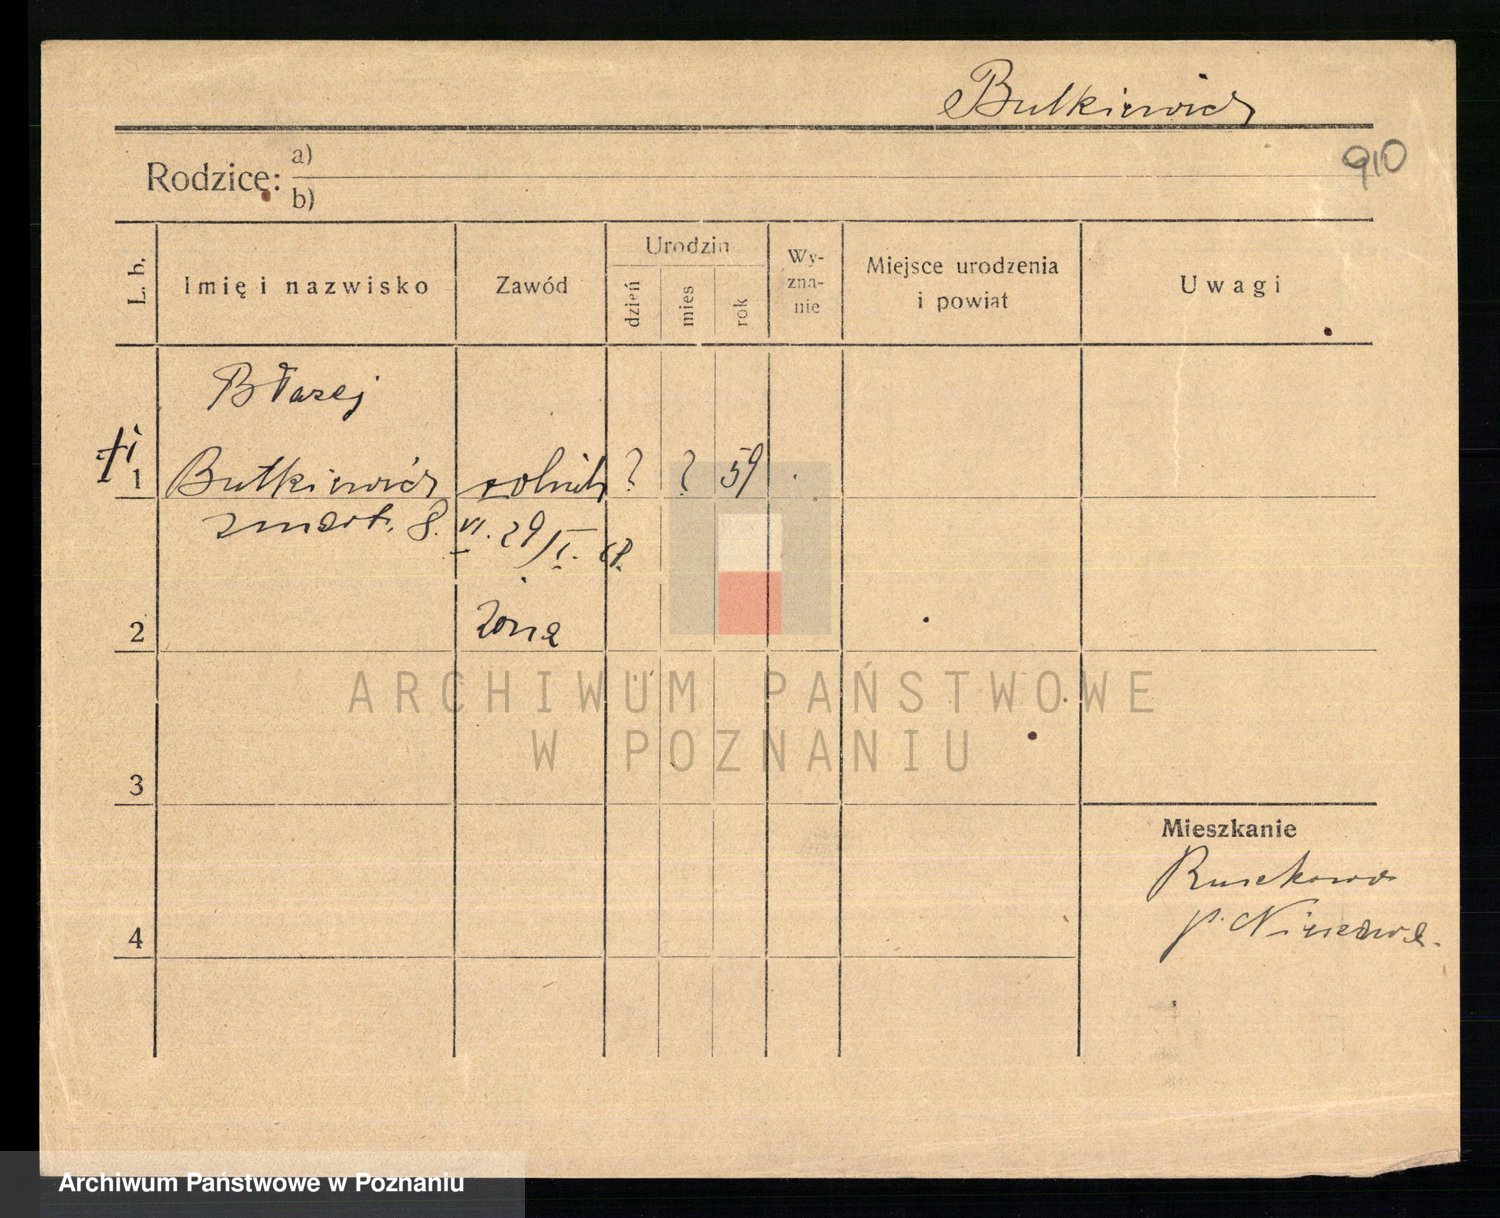 Butkiewicz
910
Rodzice: a)
b)
L. b.
Imię i nazwisko
Zawód
Urodzin
dzień
mies
rok
Wy-
zna-
nie
Miejsce urodzenia
i powiat
Uwagi
Błażej
1 Butkiewicz rolnik ? ? 59
zmarł. 8. VI. 29
2 żona
3
4
Mieszkanie
p. Nieszawa.
ARCHIWUM PAŃSTWOWE
W POZNANIU
Archiwum Państwowe w Poznaniu